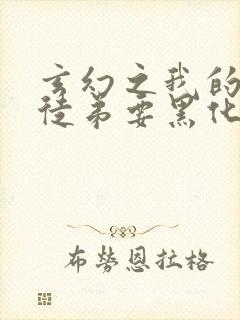 玄幻之我的
徒弟要黑化
布劳恩拉格